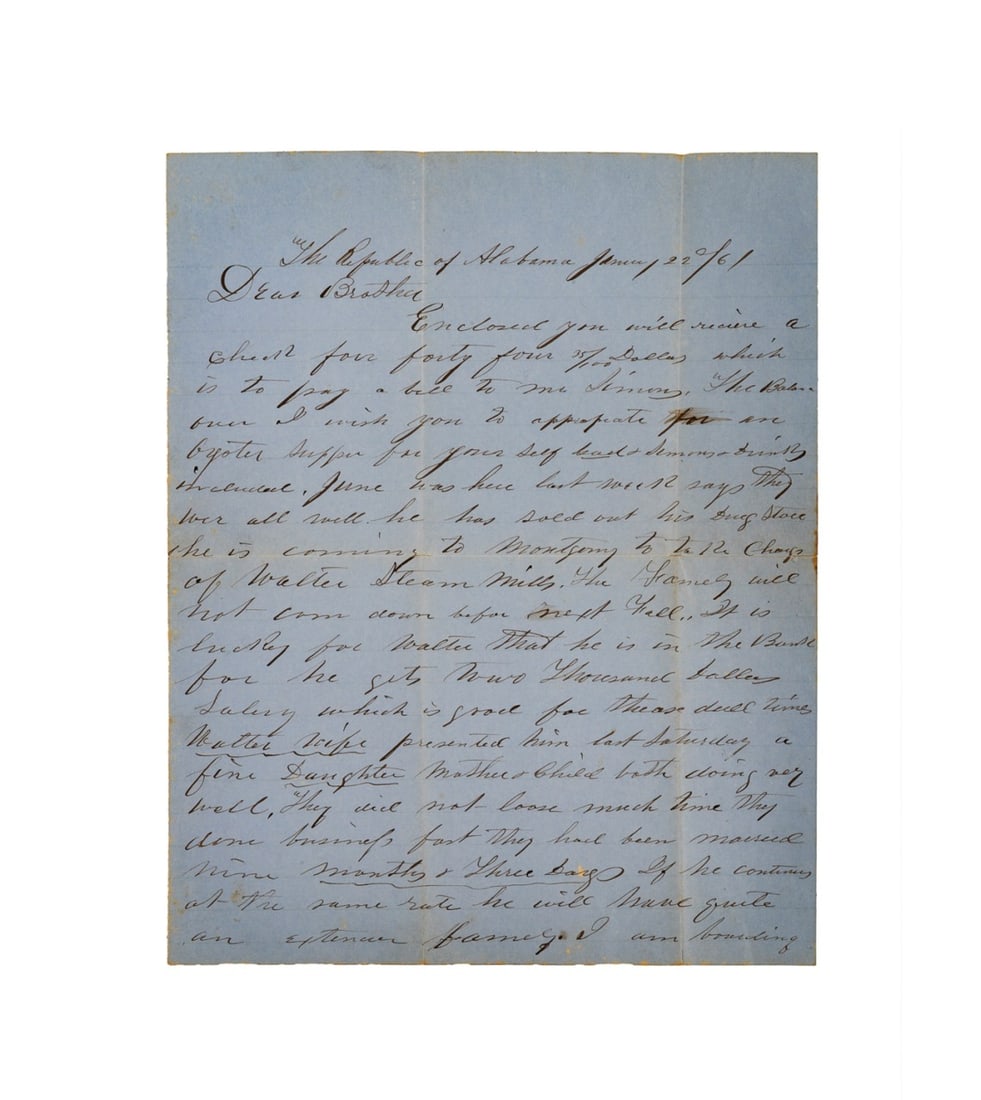 "The Republic of Alabama January 22d/61
Dear Brother
Enclosed you will reciere a
check four forty four 75/100 Dollars which
is to pay a bill to mr Simons. "The Balan
over I wish you to appropiate for an
Oyster Supper for your Self Simons & Drinks
included. June was here last week says They
wer all well. he has sold out his Drug Store
he is coming to Montgomy to take Charge
of Walter Steam Mills. The Famely will
not com down befor next Fall,. It is
lucky for Walter That he is in The Bank
for he gets Two Thousand Dollars
Salery which is good for thease dull times
Walter wife presented him last Saturday a
fine Daughter Mother & Child both doing very
well. "They did not loose much time They
done business fast They had been married
nine months & Three Days If he continues
at The same rate he will have quite
an famely. I am boarding